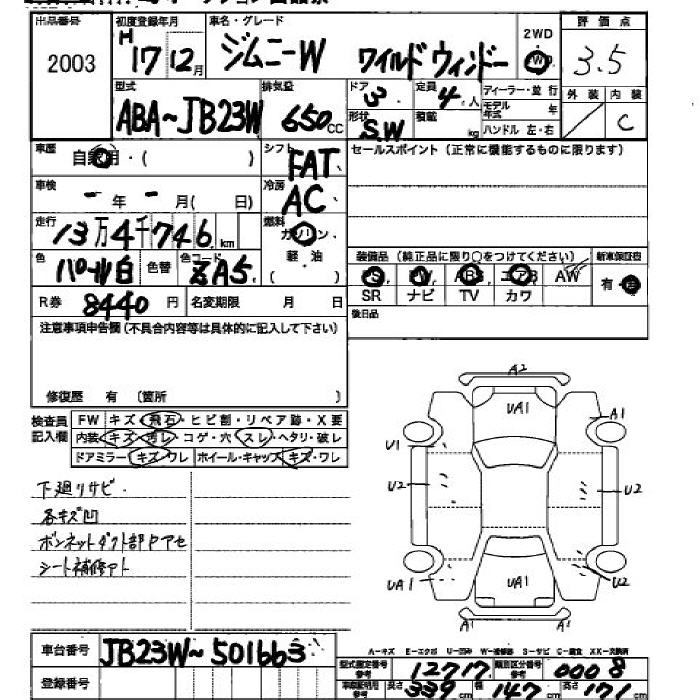 出品番号 初度登録年月 車名・グレード 2WD 評価点
2003 H17 12月 ジムニーW ワイルドウィンドー 4W 3.5
型式 排気量 ドア 定員 ディーラー・並行 外装 内装
ABA~JB23W 650CC 3. 4人 モデル年式 年
形状 SW 積載 kg ハンドル 左・右 C
車歴 自家用・( ) シフト FAT セールスポイント(正常に機能するものに限ります)
車検 -年 -月( 日) 冷房 AC
走行 13万4千746km 燃料 ガソリン・軽・油( )
色 パール白 色替 色コード ZA5 装備品(純正品に限り○をつけてください) 新車保証書
PS PW ABS エアB AW 有・無
SR ナビ TV カワ
R券 8440円 名変期限 月 日 後日品
注意事項申告欄(不具合内容等は具体的に記入して下さい)
修復歴 有 (箇所 )
検査員記入欄 FW キズ・飛石・ヒビ割・リペア跡・X要
内装 キズ・汚レ・コゲ・穴・スレ・ヘタリ・破レ
ドアミラー キズ・ワレ ホイール・キャップ キズ・ワレ
下廻りサビ.
各キズ凹
ボンネットダクト部Pアセ
シート補修アト
A2
UA1
A1
U1
U2
U2
UA1
UA1
U2
A1
A1
車台番号 JB23W~501663
登録番号
A-キズ E-エクボ U-凹み W-補修跡 S-サビ C-腐食 XX-交換済
型式指定番号 参考 12717 類別区分番号 参考 0008
車庫証明用 参考 長さ 339cm 幅 147cm 高さ 171cm